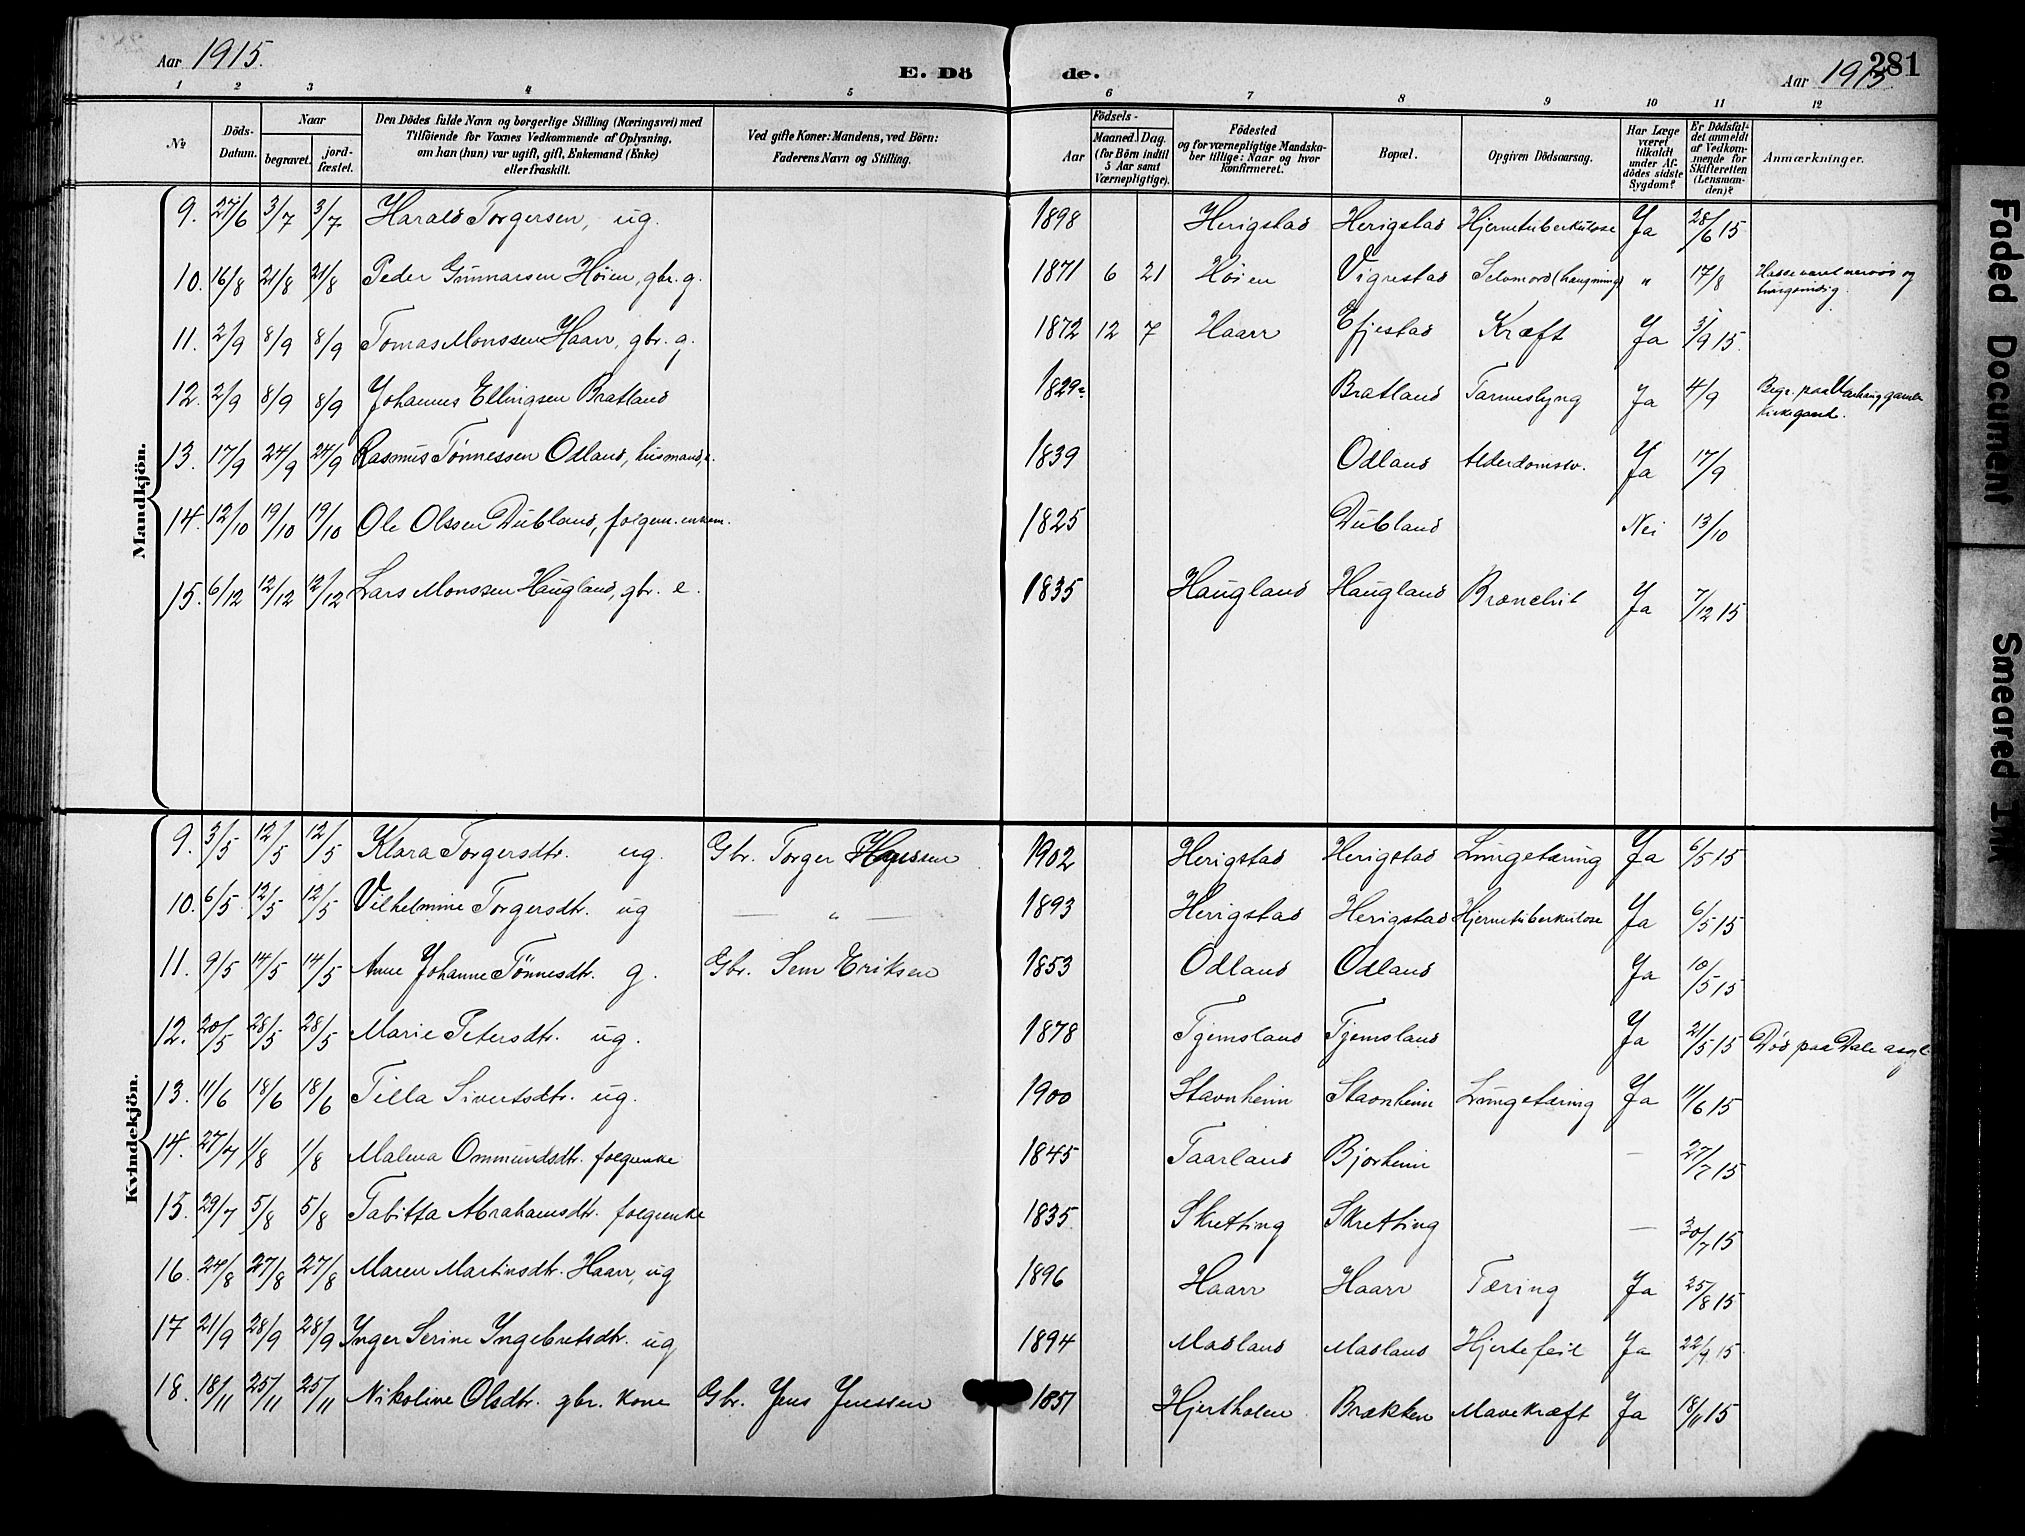 Aar 1915.
E. Dö de.
Aar 1915.
281
1 2 3 4 5 6 7 8 9 10 11 12
No
Döds-Datum.
Naar
begravet.
jordfæstet.
Den Dödes fulde Navn og borgerlige Stilling (Næringsvei) med
Tilföiende for Voxnes Vedkommende af Oplysning,
om han (hun) var ugift, gift, Enkemand (Enke)
eller fraskilt.
Ved gifte Koner: Mandens, ved Börn:
Faderens Navn og Stilling.
Födsels-
Aar
Maaned. Dag.
(for Börn indtil
5 Aar samt
Værnepligtige).
Födested
og for værnepligtige Mandskaber tillige: Naar og hvor
konfirmeret.
Bopæl.
Opgiven Dödsaarsag.
Har Læge
været
tilkaldt
under Afdödes sidste
Sygdom?
Er Dödsfaldet anmeldt
af Vedkommende for
Skifteretten
(Lensmanden)?
Anmærkninger.
Mandkjön.
9. 27/6 3/7 3/7 Harald Torgersen, ug. 1898 Herigstad Herigstad Hjernetuberkulose Ja 28/6 15
10. 16/8 21/8 21/8 Peder Gunnarsen Høien, gbr. g. 1871 6 21 Høien Vigrestad Selvmord (hængning) " 17/8 været nervøs og
tungsindig.
11. 2/9 8/9 8/9 Tomas Monssen Haarr, gbr. g. 1872 12 7 Haarr Efjestad Kræft Ja 3/9 15.
12. 2/9 8/9 8/9 Johannes Ellingsen Bratland 1829 Bratland Tarmslyng Ja 4/9 Begr. paa Varhaug gamle
kirkegaard.
13. 17/9 24/9 24/9 Rasmus Tønnessen Odland, husmand, 1839 Odland Alderdomssv. Ja 17/9
14. 12/10 19/10 19/10 Ole Olssen Dubland, folgem. enkem. 1825 Dubland Nei 13/10
15. 6/12 12/12 12/12 Lars Monssen Haugland, gbr. e. 1835 Haugland Haugland Ja 7/12 15
Kvindekjön.
9. 3/5 12/5 12/5 Klara Torgersdtr. ug. Gbr. Torger 1902 Herigstad Herigstad Lungetæring Ja 6/5 15
10. 6/5 12/5 12/5 Vilhelmine Torgersdtr. ug — " — 1893 Herigstad Herigstad Hjernetuberkulose Ja 6/5 15
11. 9/5 14/5 14/5 Anne Johanne Tönnesdtr. g. Gbr. Sem Eriksen 1853 Odland Odland Ja 10/5 15
12. 20/5 28/5 28/5 Marie Petersdtr. ug. 1878 Tjemsland Tjemsland Ja 21/5 15 Død paa Dale asyl
13. 11/6 18/6 18/6 Tilla Sivertsdtr. ug. 1900 Stavnheim Stavnheim Lungetæring Ja 11/6 15
14. 27/7 1/8 1/8 Malena Ommundsdtr. folgenke 1845 Taarland Bjorheim — 27/7 15
15. 29/7 5/8 5/8 Tabitta Abrahamsdtr. folgenke 1835 Skretting Skretting — 30/7 15
16. 24/8 27/8 27/8 Maren Martinsdtr. Haarr, ug 1896 Haarr Haarr Tæring Ja 25/8 15
17 21/9 28/9 28/9 Inger Serine Ingebretsdtr. ug 1894 Madland Madland Hjertefeil Ja 22/9 15.
18. 18/11 25/11 25/11 Nikoline Olsdtr. gbr. kone Gbr. Jens Jenssen 1851 Hjertholen Brækken Mavekræft Ja 18/11 15
Faded Document
Smeared Ink